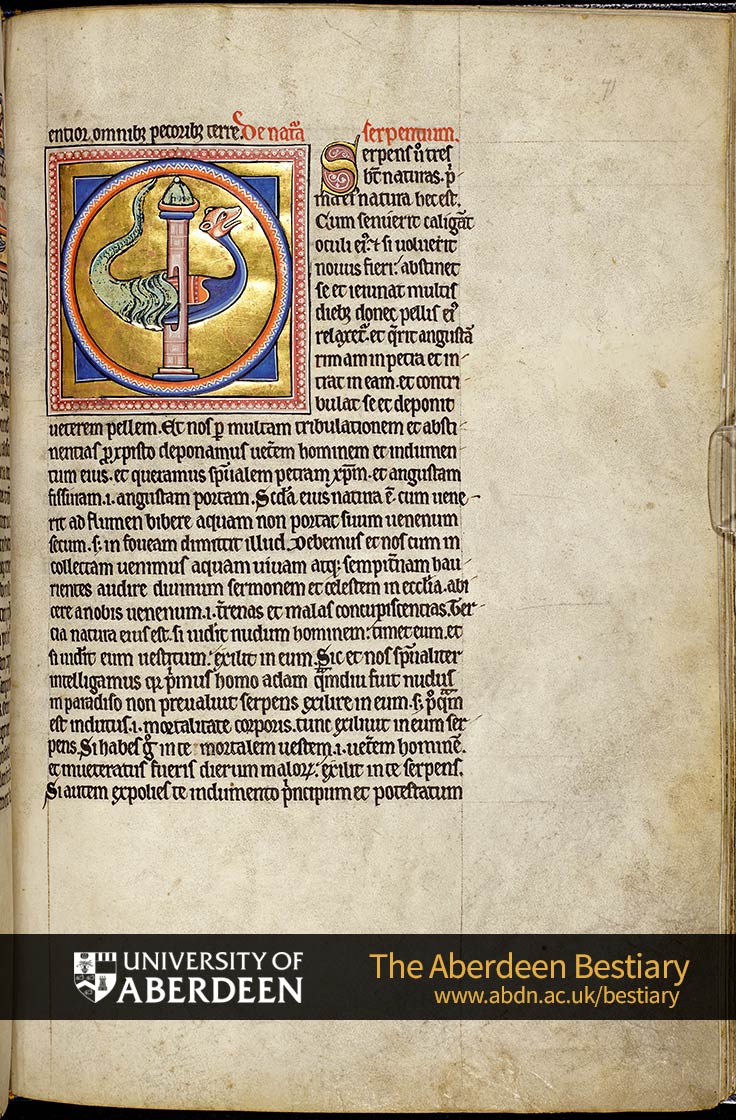 entior omnibꝫ pecoribꝫ terre. De nat̃a
serpentium.
Serpens ñ tres
ht̃ naturas. p̃
ma ei natura hec est.
Cum senuerit caligãt
oculi eiꝰ. et si uoluerit
nouus fieri: abstinet
se et ieiunat multis
diebꝫ donec pellis eiꝰ
relaxet̃. et q̃rit angustã
rimam in petra et in
trat in eam. et contri
bulat se et deponit
ueterem pellem. Et nos ꝑ multam tribulationem et absti
nentias ꝓ xp̃isto deponamus uetẽm hominem et indumen
tum eius. et queramus sp̃ualem petram xp̃m. et angustam
fissuram .i. angustam portam. Scd̃a eius natura ẽ. cum uene
rit ad flumen bibere aquam non portat suum uenenum
secum. s; in foueam dimittit illud. Debemus et nos cum in
collectam uenimus aquam uiuam atqꝫ sempit̃nam hau
rientes audire diuinum sermonem et celestem in ecclĩa. abi
cere a nobis uenenum .i. t̃renas et malas concupiscentias. Ter
cia natura eius est. si uidit nudum hominem: timet eum. et
si uidit eum uestitum: exilit in eum. Sic et nos sp̃ualiter
intelligamus qꝛ p̃mus homo adam q̃mdiu fuit nudus
in paradiso non preualuit serpens exilire in eum. s; p̃q̃m
est indutus .i. mortalitate corporis. tunc exiliuit in eum ser
pens. Si habes g̊ in te mortalem uestem .i. uetẽm hominẽ.
et inueteratus fueris dierum maloꝝ: exilit in te serpens.
Si autem expolies te indumento p̃ncipum et potestatum
UNIVERSITY OF
ABERDEEN
The Aberdeen Bestiary
www.abdn.ac.uk/bestiary